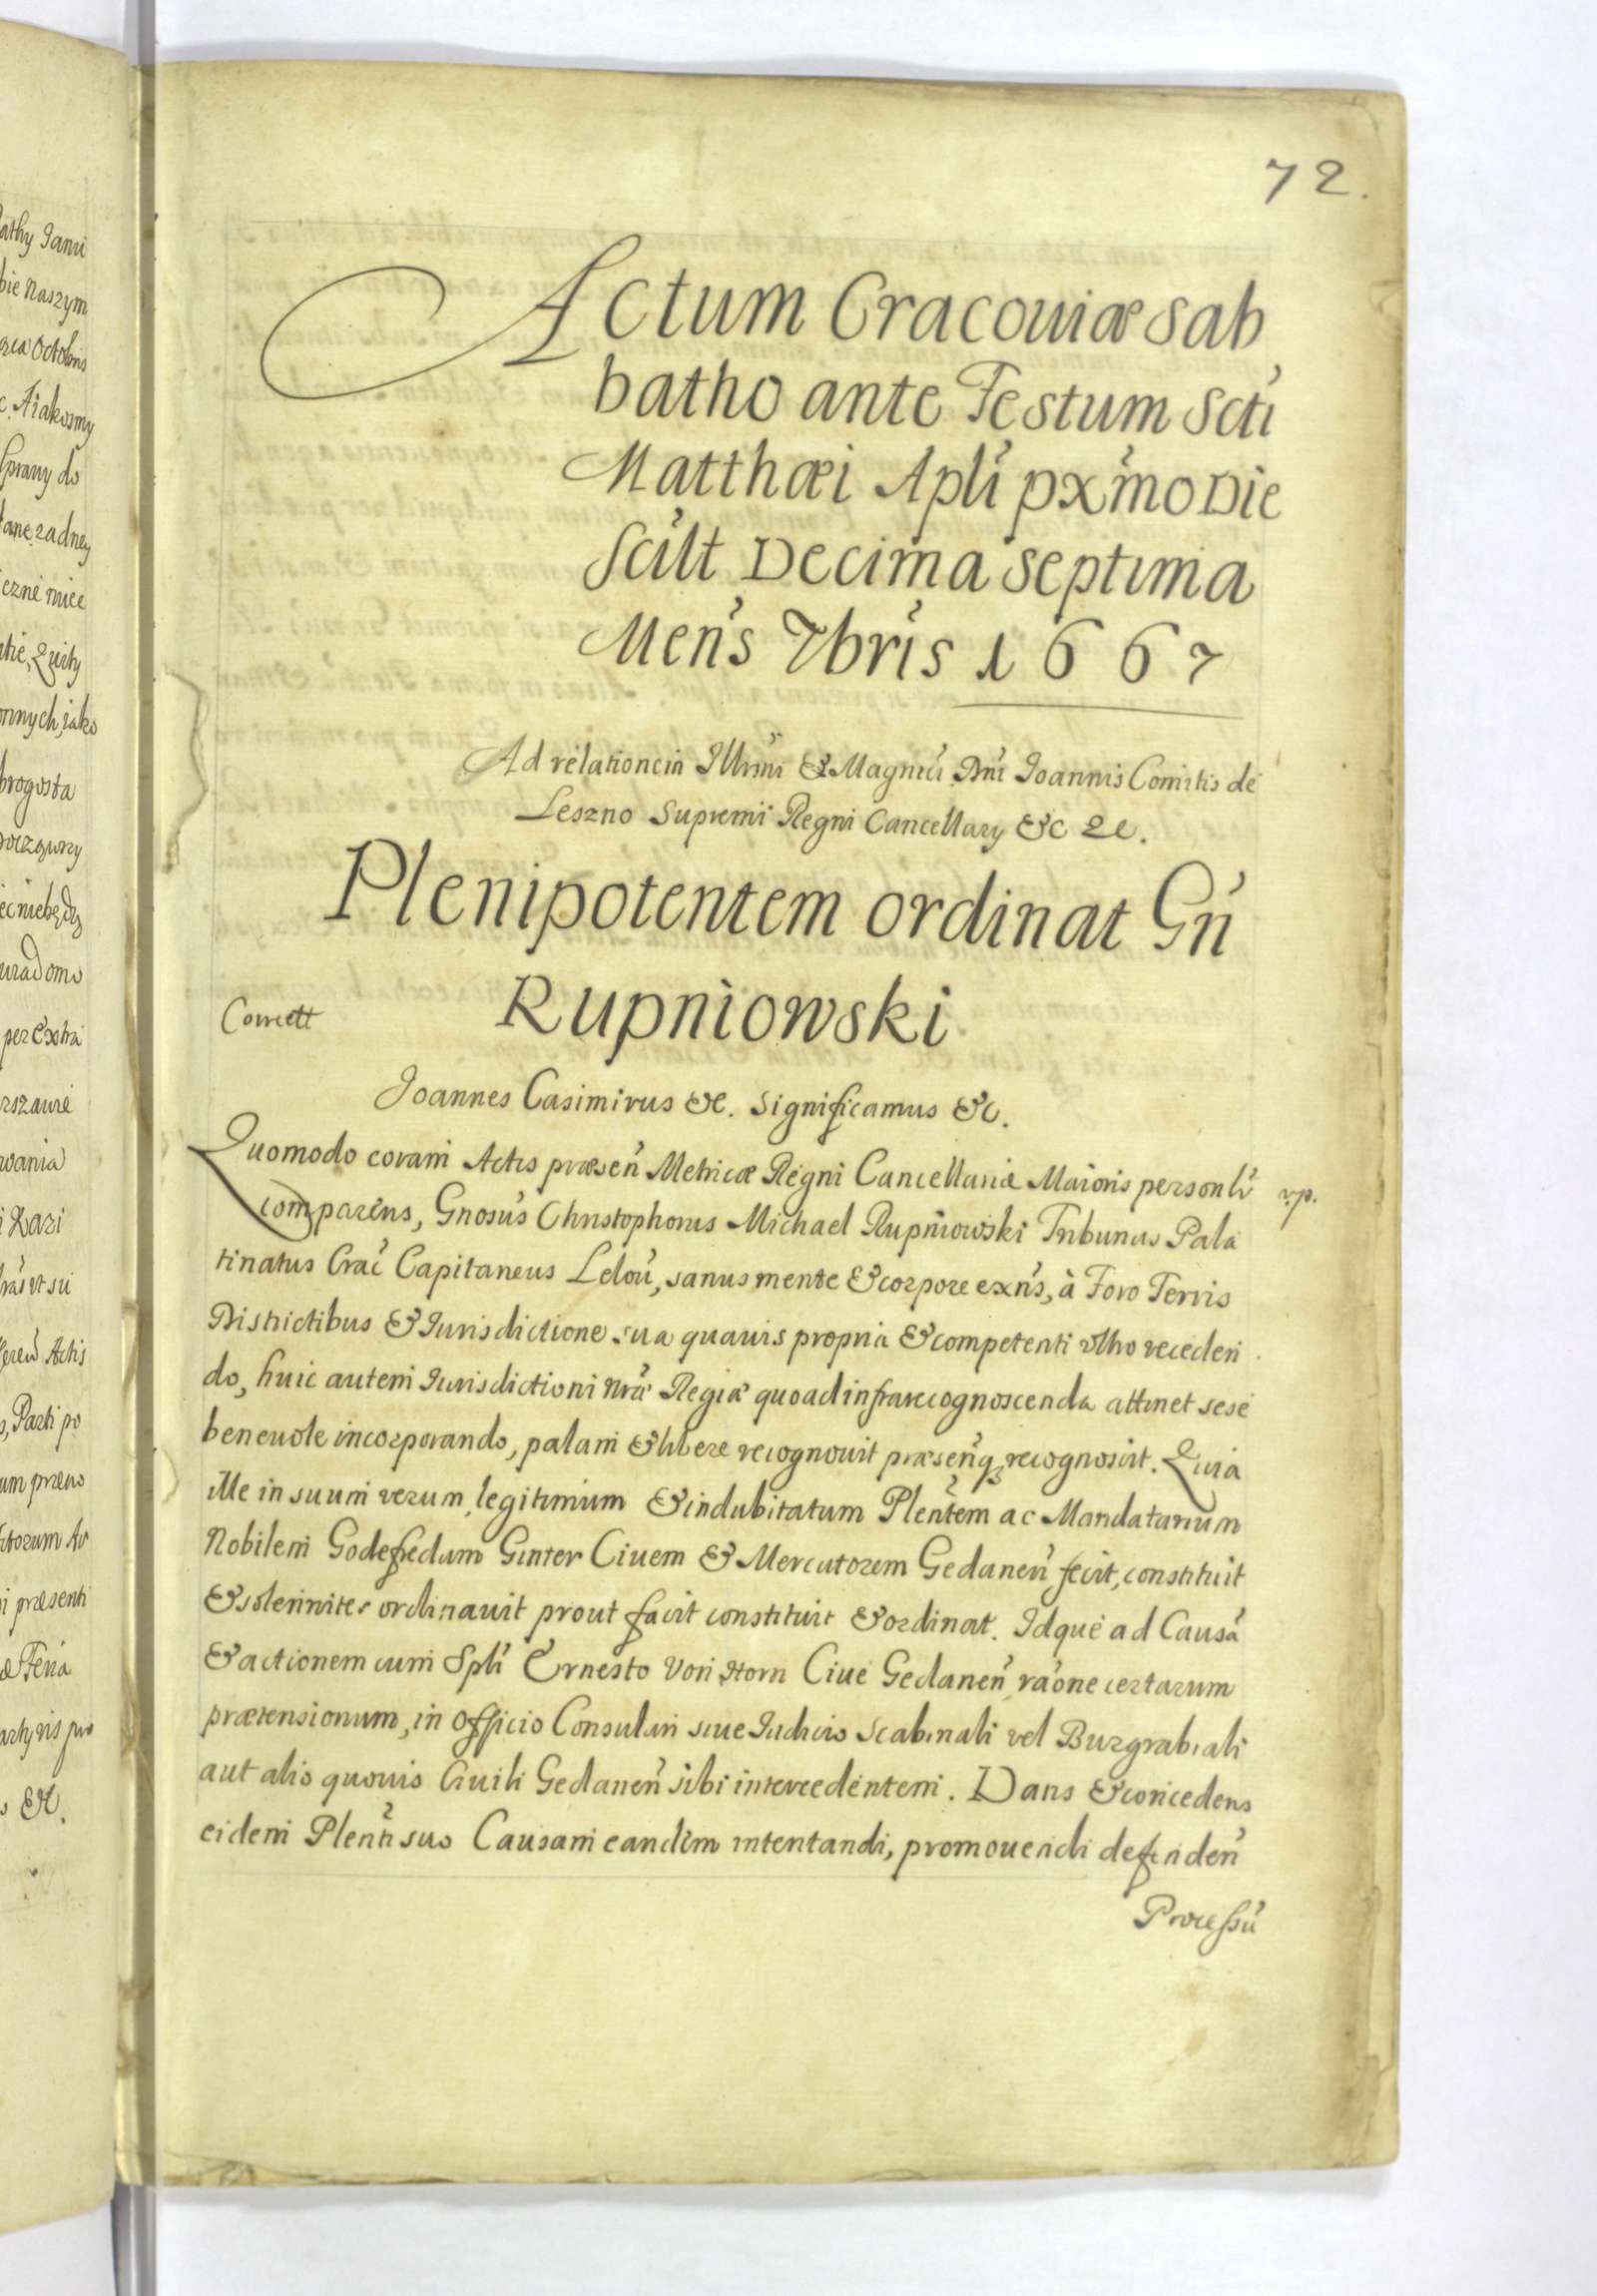 72.
Actum Cracouiæ Sab
batho ante Festum Scti
Matthæi Apli pxmo Die
Scilt Decima Septima
Mens 7bris 1667
Ad relationem Illrmi & Magnci Dni Joannis Comitis de
Leszno Supremi Regni Cancellary &c 2c.
Plenipotentem ordinat Gn
Rupniowski
Correct
Joannes Casimirus &c. Significamus &c.
Quomodo coram Actis præsen Metricæ Regni Cancellariæ Maioris personlr
comparens, Gnosus Christophorus Michael Rupniowski Tribunus Pala
tinatus Crac Capitaneus Lelou, sanus mente & corpore exns, à Foro Terris
Districtibus & Iurisdictione sua quauis propria & competenti olho receden
do, huic autem Iurisdictioni nræ Regiæ quoad infrarecognoscenda attinet sese
beneuole incorporando, palam & libere recognouit præsenq recognoscit. Quia
ille in suum verum, legitimum & indubitatum Plentem ac Mandatarium
Nobilem Godefredum Ginter Ciuem & Mercatorem Gedanen fecit, constituit
& solenniter ordinauit prout facit constituit & ordinat. Idque ad Causa
& actionem cum Spli Ernesto Von Horn Ciue Gedanen raone certarum
prætensionum, in Officio Consulari siue Iudicio Scabinali vel Burgrabiali
aut alio quouis Ciuili Gedanen sibi intercedentem. Dans & concedens
eidem Plenti suo Causam eandem intentandi, promouendi defenden
Processu